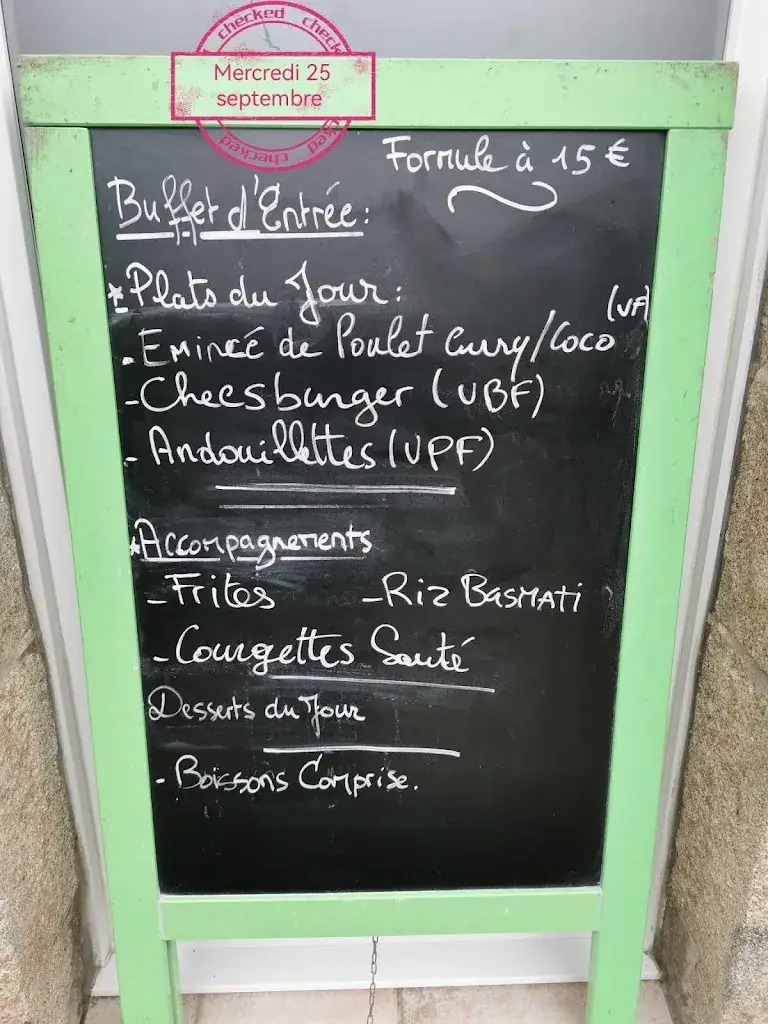 checked check
Mercredi 25
septembre
checked ked
Formule à 15 €
Buffet d'Entrée:
*Plats du Jour:
(VF)
- Emincé de Poulet Curry/Coco
- Cheesburger (VBF)
- Andouillettes (VPF)
*Accompagnements
- Frites - Riz Basmati
- Courgettes Sauté
Desserts du Jour
- Boissons Comprise.